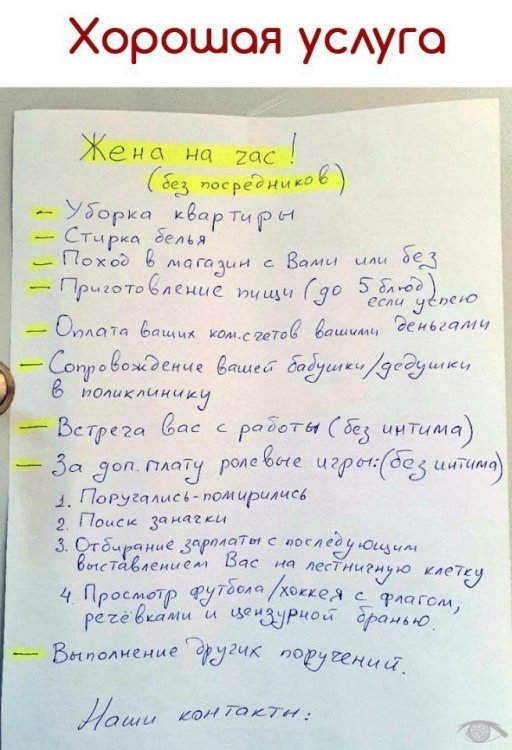 Хорошая услуга
Жена на час!
(без посредников)
– Уборка квартиры
– Стирка белья
– Поход в магазин с Вами или без
– Приготовление пищи (до 5 блюд)
если успею
– Оплата ваших ком.счетов вашими деньгами
– Сопровождение вашей бабушки/дедушки
в поликлинику
– Встреча вас с работы (без интима)
– За доп. плату ролевые игры: (без интима)
1. Поругались-помирились
2. Поиск заначки
3. Отбирание зарплаты с последующим
выставлением Вас на лестничную клетку
4. Просмотр футбола/хоккея с флагом,
речёвками и цензурной бранью.
– Выполнение других поручений.
Наши контакты: